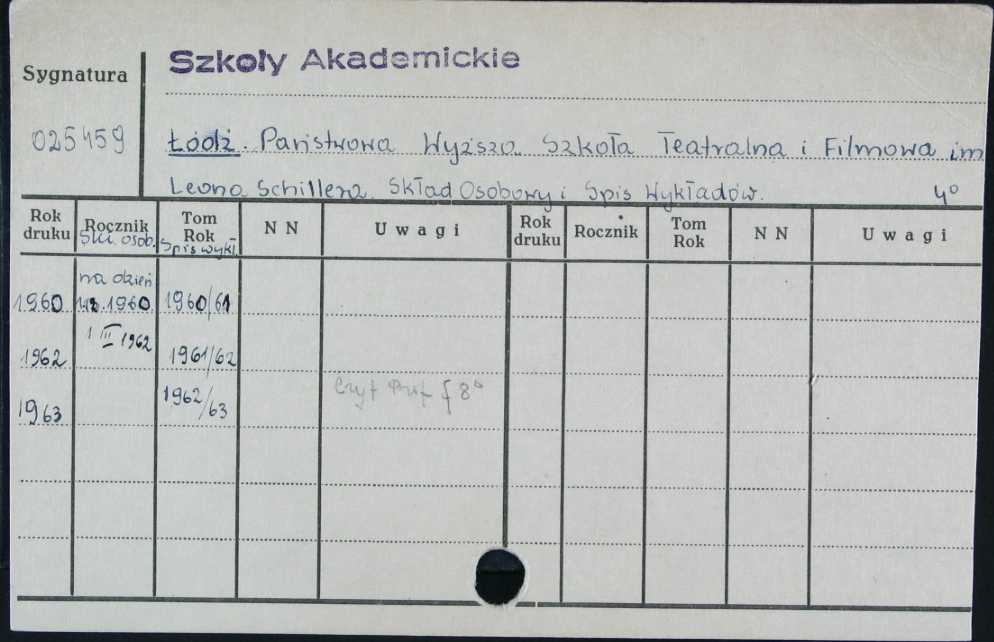 Szkoły Akademickie
Sygnatura
025459
Łódź. Państwowa Wyższa Szkoła Teatralna i Filmowa im
Leona Schillera. Skład Osobowy i Spis Wykładów. 4°
Rok druku Rocznik Skł. osob. Tom Rok Spis wykł. N N Uwagi Rok druku Rocznik Tom Rok N N Uwagi
na dzień
1960 1960. 1960/61
1 III 1962
1962 1961/62
1963 1962/63 8°